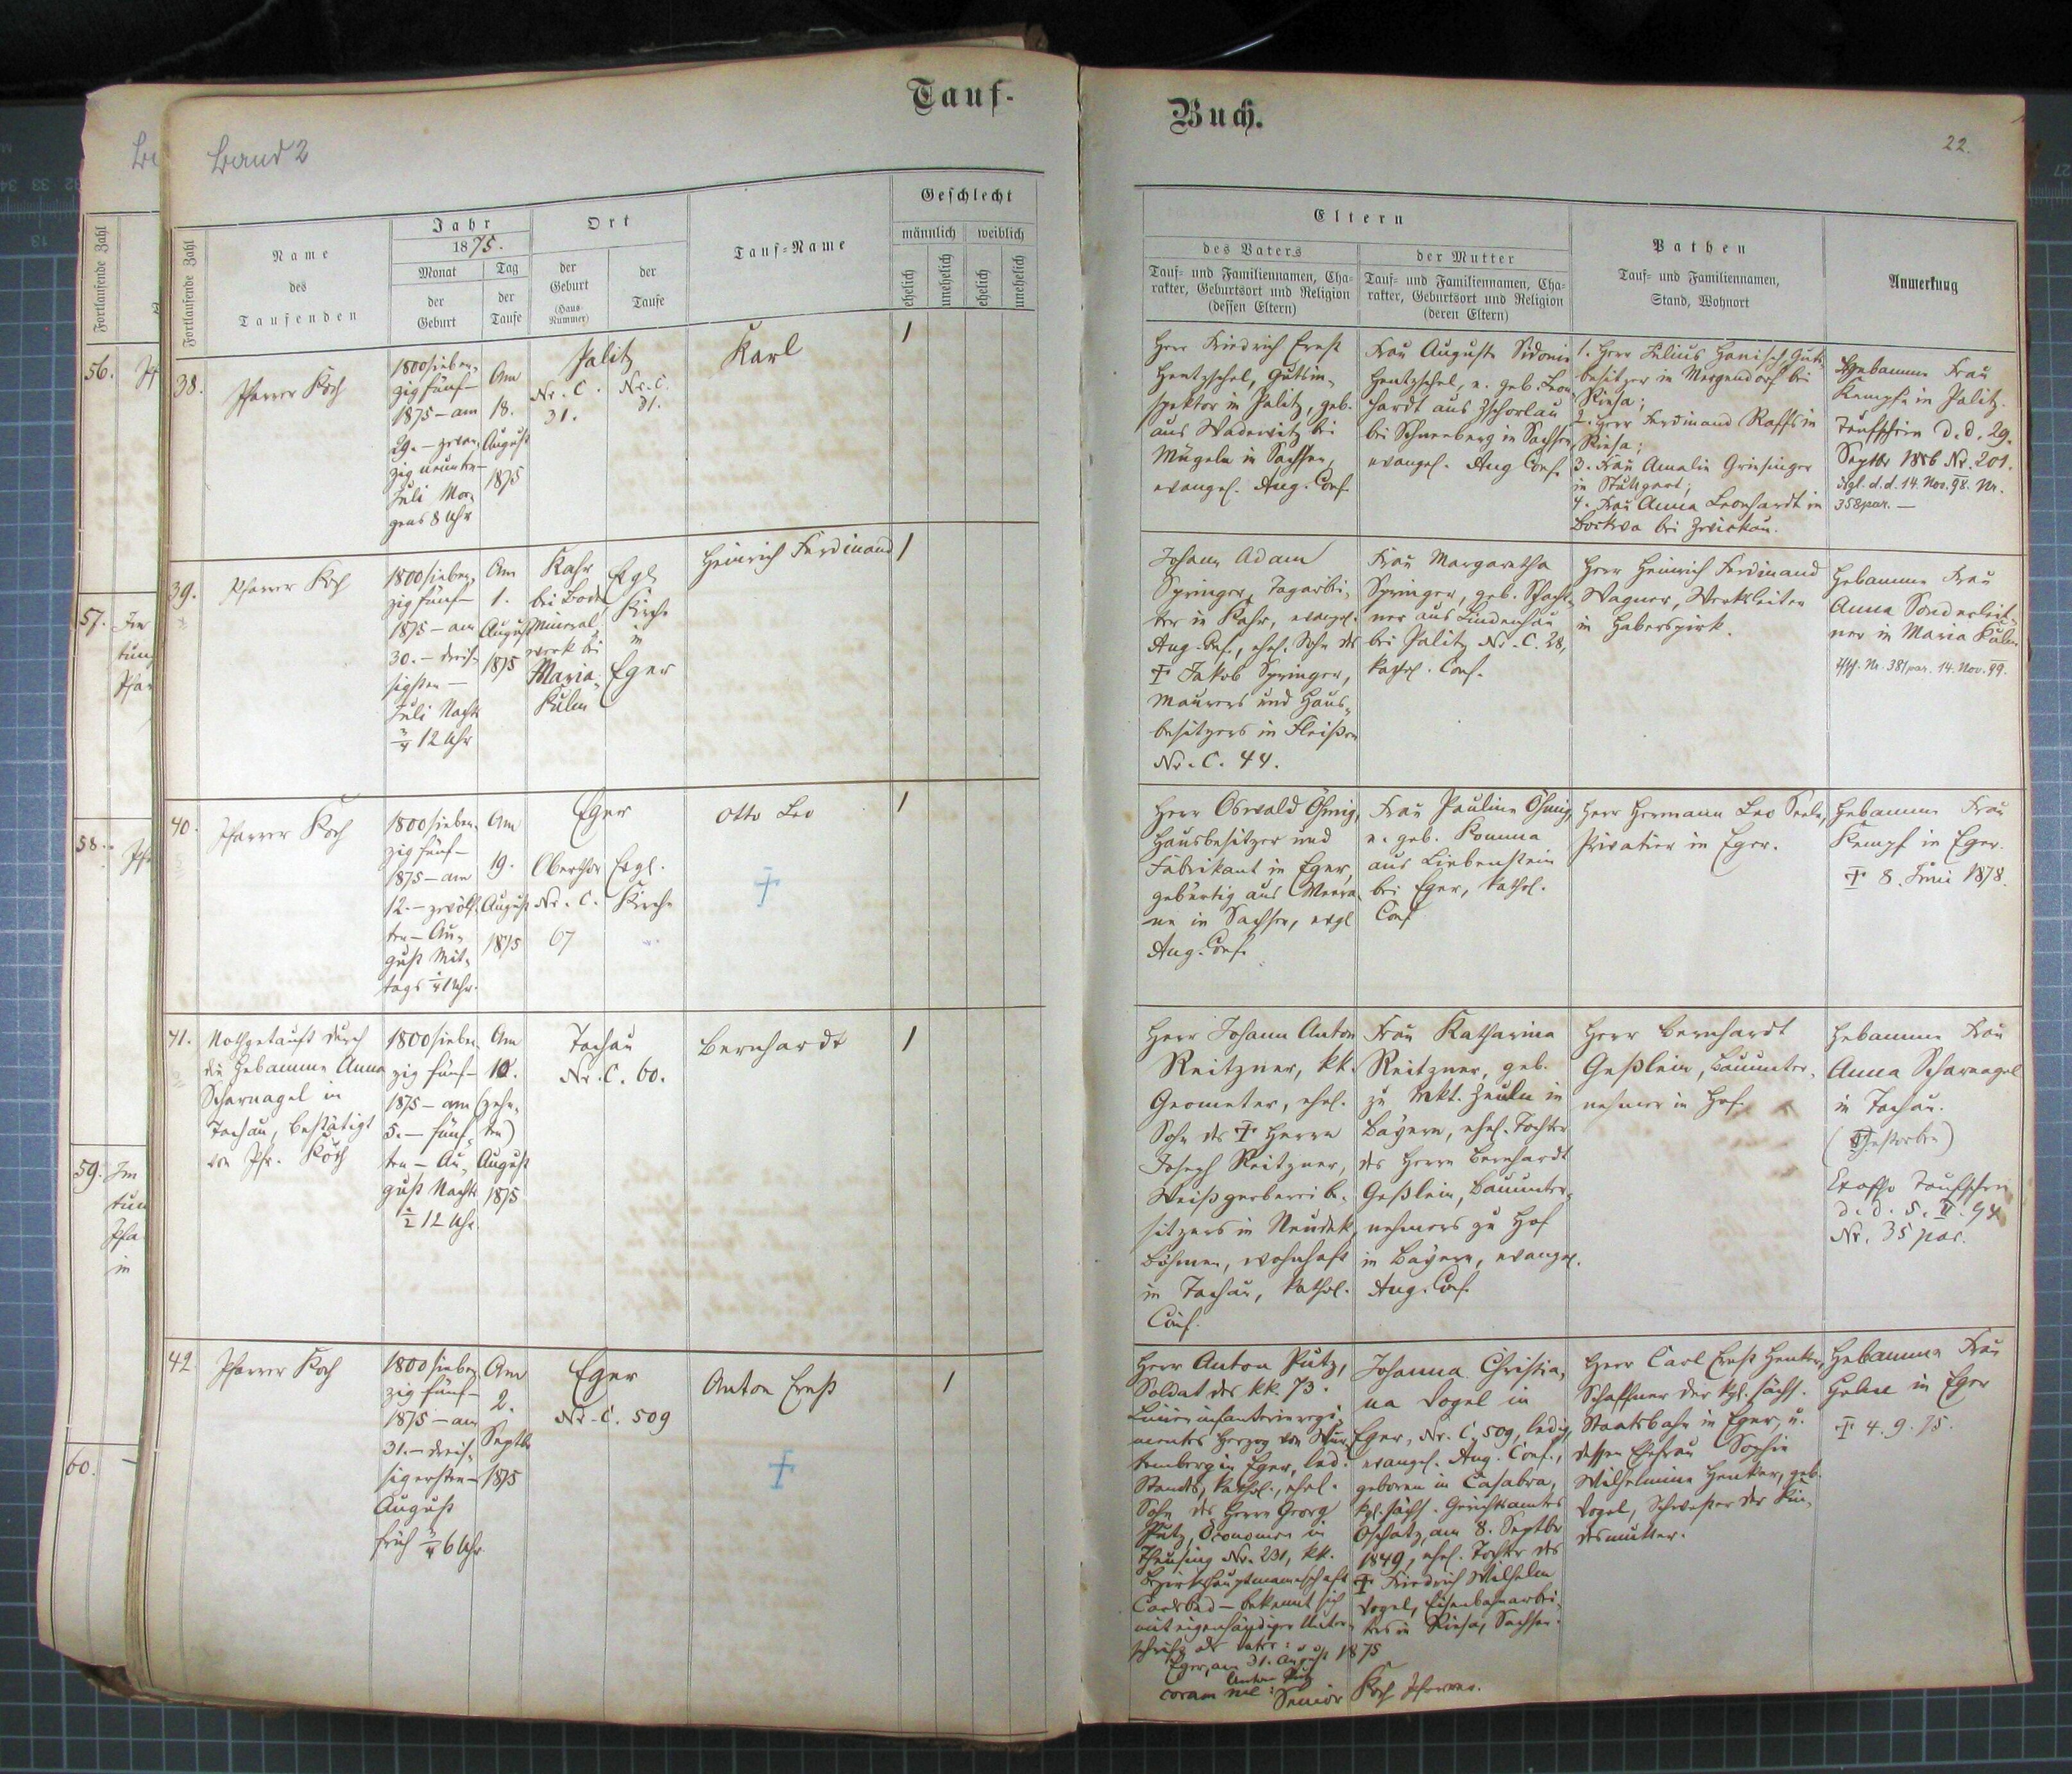 Tauf-
Buch.
Band 2
22.
Fortlaufende Zahl
Name
des
Taufenden
Jahr
1875.
Monat
der
Geburt
Tag
der
Taufe
Ort
der
Geburt
(Haus-
Nummer)
der
Taufe
Tauf-Name
Geschlecht
männlich
weiblich
ehelich
unehelich
ehelich
unehelich
Eltern
des Vaters
Tauf- und Familiennamen, Cha-
rakter, Geburtsort und Religion
(dessen Eltern)
der Mutter
Tauf- und Familiennamen, Cha-
rakter, Geburtsort und Religion
(deren Eltern)
Pathen
Tauf- und Familiennamen,
Stand, Wohnort
Anmerkung
38.
Pfarrer Koch
1800 sieben-
zig fünf-
1875 – am
29. – zwan-
zig neunten
Juli Mor-
gens 8 Uhr
Am
18.
August
1875
Palitz
Nr. C.
31.
Nr. C.
31.
Karl
1
Herr Friedrich Ernst
Hentzschel, Gutsin-
spektor in Palitz, geb.
aus Wadewitz bei
Mügeln in Sachsen,
evangel. Aug. Conf.
Frau Auguste Sidonie
Hentzschel, e. geb. Leon-
hardt aus Zschorlau
bei Schneeberg in Sachsen
evangel. Aug. Conf.
1. Herr Julius Hanisch, Guts-
besitzer in Mergendorf bei
Riesa;
2. Herr Ferdinand Roffs in
Riesa;
3. Frau Amalie Griesinger
in Stuttgart;
4. Frau Anna Leonhardt in
Bockwa bei Zwickau.
Hebamme Frau
Kempf in Palitz.
Taufschein d. d. 29.
Septbr 1886 Nr. 201.
dgl. d. d. 14. Nov. 98. Nr.
358 par. –
39.
Pfarrer Koch
1800 sieben-
zig fünf-
1875 – am
30. – dreis-
sigsten –
Juli Nachts
3/4 12 Uhr
Am
1.
August
1875
Kahr
bei Boden
Mineral-
werk bei
Maria-
Kulm
Evgl.
Kirche
in
Eger
Heinrich Ferdinand
1
Johann Adam
Springer, Tagarbei-
ter in Kahr, evangel.
Aug. Conf., ehel. Sohn des
† Jakob Springer,
Maurers und Haus-
besitzers in Fleißen
Nr. C. 44.
Frau Margaretha
Springer, geb. Schacht-
ner aus Lindenhau
bei Palitz Nr. C. 28,
kathol. Conf.
Herr Heinrich Ferdinand
Wagner, Werksleiter
in Haberspirk.
Hebamme Frau
Anna Sonderleit-
ner in Maria Kulm
Tfsch. Nr. 381 par. 14. Nov. 99.
40.
Pfarrer Koch
1800 sieben-
zig fünf-
1875 – am
12. – zwölf-
ten – Au-
gust Mit-
tags 1/4 1 Uhr.
Am
19.
August
1875
Eger
Oberthor
Nr. C.
67
Evgl.
Kirche
Otto Leo
†
1
Herr Oswald Öhmig,
Hausbesitzer und
Fabrikant in Eger,
gebürtig aus Meera-
ne in Sachsen, evgl
Aug. Conf.
Frau Pauline Öhmig,
e. geb. Komma
aus Liebenstein
bei Eger, kathol.
Conf
Herr Hermann Leo Seele,
Privatier in Eger.
Hebamme Frau
Kempf in Eger.
† 8. Juni 1878.
41.
Nothgetauft durch
die Hebamme Anna
Scharnagel in
Tachau, bestätigt
von Pfr. Koch
1800 sieben-
zig fünf-
1875 – am
5. – fünf-
ten – Au-
gust Nachts
1/2 12 Uhr.
Am
10.
(zehn-
ten)
August
1875
Tachau
Nr. C. 60.
Bernhardt
1
Herr Johann Anton
Reitzner, kk.
Geometer, ehel.
Sohn des † Herrn
Joseph Reitzner,
Weißgerberei be-
sitzers in Neudek
Böhmen, wohnhaft
in Tachau, kathol.
Conf.
Frau Katharina
Reitzner, geb.
zu Mrkt. Zeuln in
Bayern, ehel. Tochter
des Herrn Bernhardt
Geßlein, Bauunter-
nehmers zu Hof
in Bayern, evangel.
Aug. Conf.
Herr Bernhardt
Geßlein, Bauunter-
nehmer in Hof
Hebamme Frau
Anna Scharnagel
in Tachau.
(Gestorben)
Taufschein
Nr. 35 par.
42.
Pfarrer Koch
1800 sieben-
zig fünf-
1875 – am
31. – dreis-
sigersten –
August
früh 3/4 6 Uhr
Am
2.
Septbr
1875
Eger
Nr. C. 509
Anton Ernst
†
1
Herr Anton Putz,
Soldat des kk. 73.
Linien infanterieregi-
mentes Herzog von Wür-
temberg in Eger, led.
Standes, kathol., ehel.
Sohn des Herrn Georg
Putz, Öconomen in
Theusing Nr. 231, kk.
Bezirkshauptmannschaft
Carlsbad – bekennt sich
mit eigenhändiger Unter-
schrift als Vater:
Eger, am 31. August 1875
Anton Putz
coram me: Senior Koch Pfarrer.
Johanna Christia-
na Vogel in
Eger, Nr. C. 509, ledig,
evangel. Aug. Conf.,
geboren in Casabra,
kgl. sächs. Gerichtsamtes
Oschatz, am 8. Septbr
1849, ehel. Tochter des
† Friedrich Wilhelm
Vogel, Eisenbahnarbei-
ters in Riesa, Sachsen.
Herr Carl Ernst Henker,
Schaffner der kgl. sächs.
Staatsbahn in Eger, u.
dessen Ehefrau Sophie
Wilhelmine Henker, geb.
Vogel, Schwester der Kin-
desmutter.
Hebamme Frau
in Eger
† 4. 9. 75.
Fortlaufende Zahl
56.
57.
58.
59.
60.